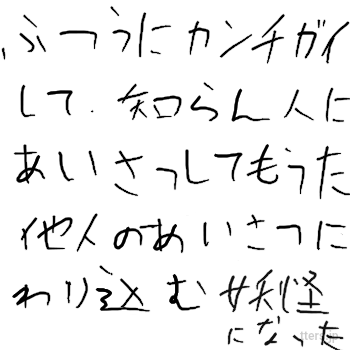 、ふつうにカンチガイ
して.知らん人に
あいさつしてもうた
他人のあいさつに
わり込む妖怪
になった